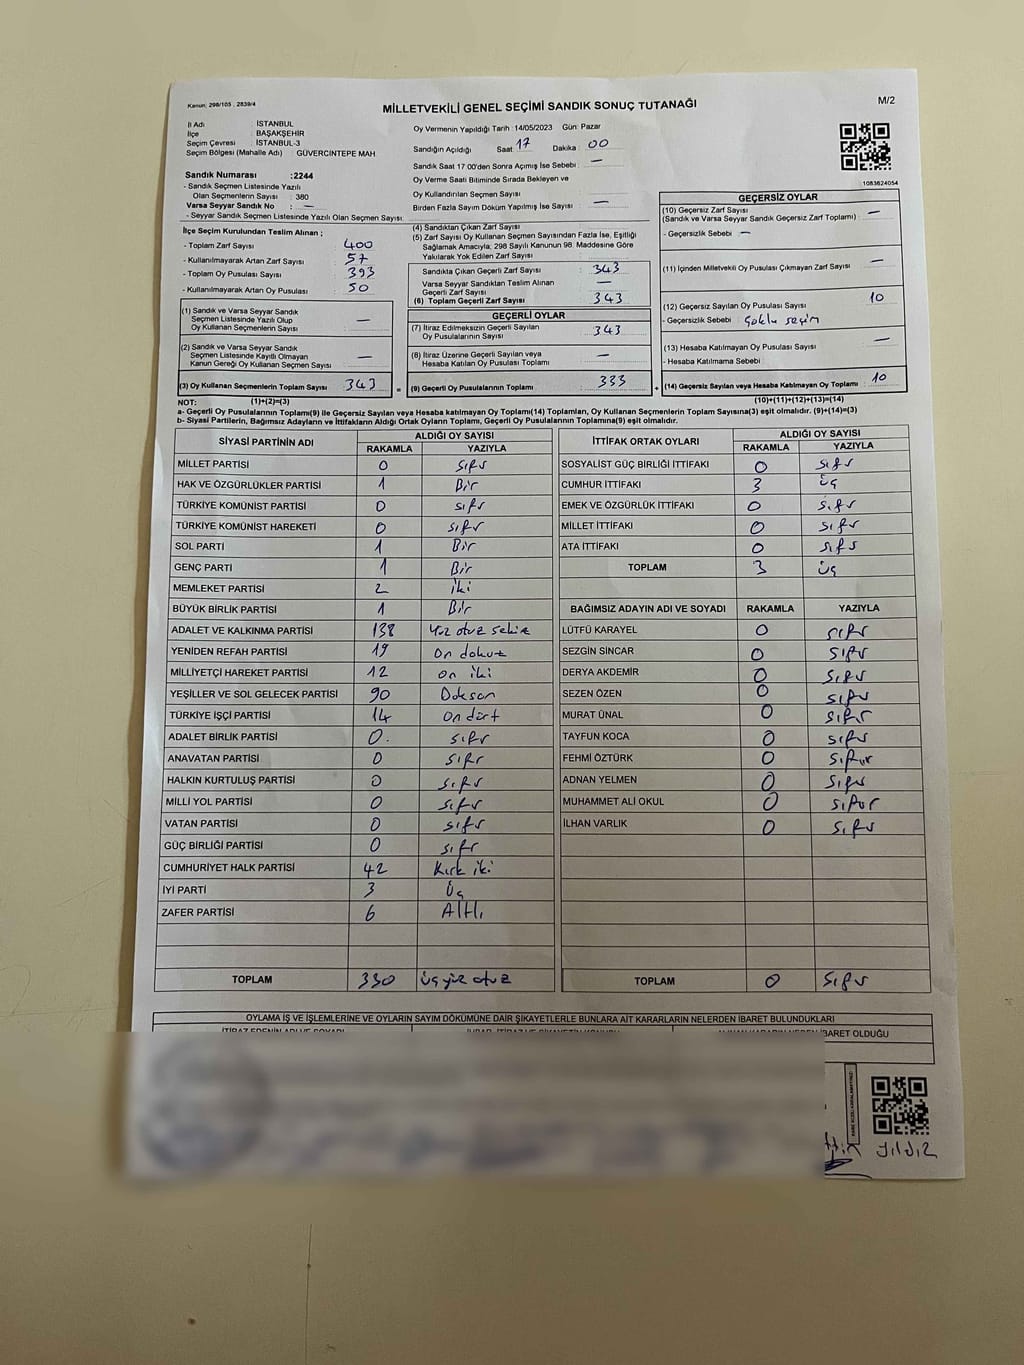 Kanun: 298/105 , 2839/4
MİLLETVEKİLİ GENEL SEÇİMİ SANDIK SONUÇ TUTANAĞI
M/2
İl Adı : İSTANBUL
İlçe : BAŞAKŞEHİR
Seçim Çevresi : İSTANBUL-3
Seçim Bölgesi (Mahalle Adı) : GÜVERCİNTEPE MAH
Sandık Numarası :2244
- Sandık Seçmen Listesinde Yazılı
Olan Seçmenlerin Sayısı : 380
Varsa Seyyar Sandık No : —
- Seyyar Sandık Seçmen Listesinde Yazılı Olan Seçmen Sayısı:
Oy Vermenin Yapıldığı Tarih :14/05/2023 Gün: Pazar
Sandığın Açıldığı Saat 17 Dakika : 00
Sandık Saat 17:00'den Sonra Açımış İse Sebebi : —
Oy Verme Saati Bitiminde Sırada Bekleyen ve
Oy Kullandırılan Seçmen Sayısı
Birden Fazla Sayım Döküm Yapılmış İse Sayısı : —
1083624054
İlçe Seçim Kurulundan Teslim Alınan ;
- Toplam Zarf Sayısı : 400
- Kullanılmayarak Artan Zarf Sayısı : 57
- Toplam Oy Pusulası Sayısı : 393
- Kullanılmayarak Artan Oy Pusulası : 50
(1) Sandık ve Varsa Seyyar Sandık
Seçmen Listesinde Yazılı Olup
Oy Kullanan Seçmenlerin Sayısı : —
(2) Sandık ve Varsa Seyyar Sandık
Seçmen Listesinde Kayıtlı Olmayan
Kanun Gereği Oy Kullanan Seçmen Sayısı : —
(3) Oy Kullanan Seçmenlerin Toplam Sayısı : 343
(4) Sandıktan Çıkan Zarf Sayısı :
(5) Zarf Sayısı Oy Kullanan Seçmen Sayısından Fazla İse, Eşitliği
Sağlamak Amacıyla; 298 Sayılı Kanunun 98. Maddesine Göre
Yakılarak Yok Edilen Zarf Sayısı :
Sandıkta Çıkan Geçerli Zarf Sayısı : 343
Varsa Seyyar Sandıktan Teslim Alınan
Geçerli Zarf Sayısı : —
(6) Toplam Geçerli Zarf Sayısı : 343
GEÇERLİ OYLAR
(7) İtiraz Edilmeksizin Geçerli Sayılan
Oy Pusulalarının Sayısı : 343
(8) İtiraz Üzerine Geçerli Sayılan veya
Hesaba Katılan Oy Pusulası Toplamı : —
= (9) Geçerli Oy Pusulalarının Toplamı : 333
GEÇERSİZ OYLAR
(10) Geçersiz Zarf Sayısı : —
(Sandık ve Varsa Seyyar Sandık Geçersiz Zarf Toplamı)
- Geçersizlik Sebebi : —
(11) İçinden Milletvekili Oy Pusulası Çıkmayan Zarf Sayısı : —
(12) Geçersiz Sayılan Oy Pusulası Sayısı : 10
- Geçersizlik Sebebi : Çoklu seçim
(13) Hesaba Katılmayan Oy Pusulası Sayısı : —
- Hesaba Katılmama Sebebi :
+ (14) Geçersiz Sayılan veya Hesaba Katılmayan Oy Toplamı : 10
NOT: (1)+(2)=(3)
(10)+(11)+(12)+(13)=(14)
a- Geçerli Oy Pusulalarının Toplamı(9) ile Geçersiz Sayılan veya Hesaba katılmayan Oy Toplamı(14) Toplamları, Oy Kullanan Seçmenlerin Toplam Sayısına(3) eşit olmalıdır. (9)+(14)=(3)
b- Siyasi Partilerin, Bağımsız Adayların ve İttifakların Aldığı Ortak Oyların Toplamı, Geçerli Oy Pusulalarının Toplamına(9) eşit olmalıdır.
SİYASİ PARTİNİN ADI ALDIĞI OY SAYISI
RAKAMLA YAZIYLA
MİLLET PARTİSİ 0 sıfır
HAK VE ÖZGÜRLÜKLER PARTİSİ 1 Bir
TÜRKİYE KOMÜNİST PARTİSİ 0 sıfır
TÜRKİYE KOMÜNİST HAREKETİ 0 sıfır
SOL PARTİ 1 Bir
GENÇ PARTİ 1 Bir
MEMLEKET PARTİSİ 2 iki
BÜYÜK BİRLİK PARTİSİ 1 Bir
ADALET VE KALKINMA PARTİSİ 138 Yüz otuz sekiz
YENİDEN REFAH PARTİSİ 19 On dokuz
MİLLİYETÇİ HAREKET PARTİSİ 12 on iki
YEŞİLLER VE SOL GELECEK PARTİSİ 90 Doksan
TÜRKİYE İŞÇİ PARTİSİ 14 On dört
ADALET BİRLİK PARTİSİ 0 sıfır
ANAVATAN PARTİSİ 0 sıfır
HALKIN KURTULUŞ PARTİSİ 0 sıfır
MİLLİ YOL PARTİSİ 0 sıfır
VATAN PARTİSİ 0 sıfır
GÜÇ BİRLİĞİ PARTİSİ 0 sıfır
CUMHURİYET HALK PARTİSİ 42 Kırk iki
İYİ PARTİ 3 Üç
ZAFER PARTİSİ 6 Altı
TOPLAM 330 üçyüz otuz
İTTİFAK ORTAK OYLARI ALDIĞI OY SAYISI
RAKAMLA YAZIYLA
SOSYALİST GÜÇ BİRLİĞİ İTTİFAKI 0 sıfır
CUMHUR İTTİFAKI 3 üç
EMEK VE ÖZGÜRLÜK İTTİFAKI 0 sıfır
MİLLET İTTİFAKI 0 sıfır
ATA İTTİFAKI 0 sıfır
TOPLAM 3 üç
BAĞIMSIZ ADAYIN ADI VE SOYADI RAKAMLA YAZIYLA
LÜTFÜ KARAYEL 0 sıfır
SEZGİN SİNCAR 0 sıfır
DERYA AKDEMİR 0 sıfır
SEZEN ÖZEN 0 sıfır
MURAT ÜNAL 0 sıfır
TAYFUN KOCA 0 sıfır
FEHMİ ÖZTÜRK 0 sıfır
ADNAN YELMEN 0 sıfır
MUHAMMET ALİ OKUL 0 sıfır
İLHAN VARLIK 0 sıfır
TOPLAM 0 sıfır
OYLAMA İŞ VE İŞLEMLERİNE VE OYLARIN SAYIM DÖKÜMÜNE DAİR ŞİKAYETLERLE BUNLARA AİT KARARLARIN NELERDEN İBARET BULUNDUKLARI
İBARET OLDUĞU
yıldız